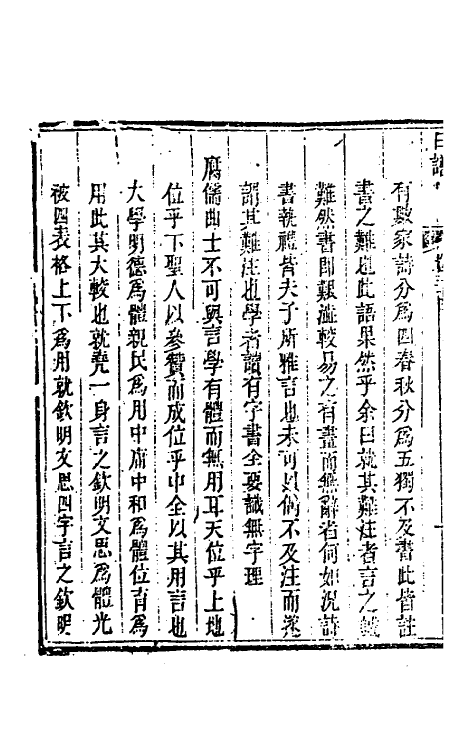 日譜
有數家詩分爲四春秋分爲五獨不及書此皆註
書之難也此語果然乎余曰就其難注者言之雖
難然書即艱澁較易之有畫而無辭者何如況詩
書執禮皆夫子所雅言也未可以偶不及注而遂
謂其難注也學者讀有字書全要識無字理
腐儒曲士不可與言學有體而無用耳天位乎上地
位乎下聖人以參贊而成位乎中全以其用言也
大學明德爲體親民爲用中庸中和爲體位育爲
用此其大較也就堯一身言之欽明文思爲體光
被四表格上下爲用就欽明文思四字言之欽明